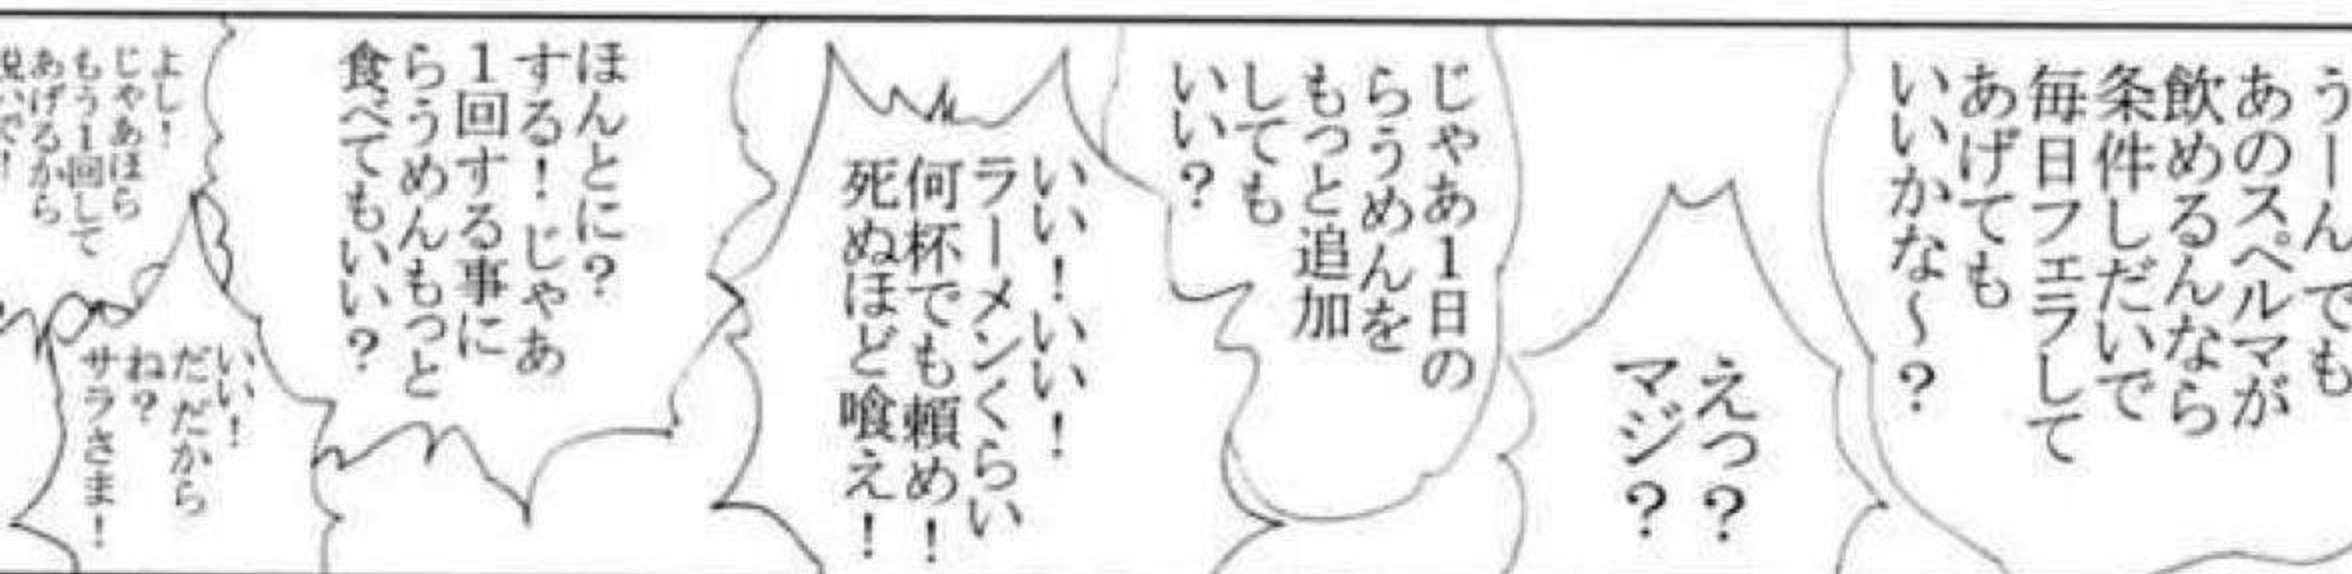 うーんでも
あのスペルマが
飲めるんなら
条件しだいで
毎日フェラして
あげても
いいかな～？
えっ？
マジ？
じゃあ1日の
らうめんを
もっと追加
しても
いい？
いい！いい！
ラーメンくらい
何杯でも頼め！
死ぬほど喰え！
ほんとに？
する！じゃあ
1回する事に
らうめんもっと
食べてもいい？
よし！
じゃあほら
もう1回して
あげるから
脱いで！
いい！
だ だから
ね？
サラさま！